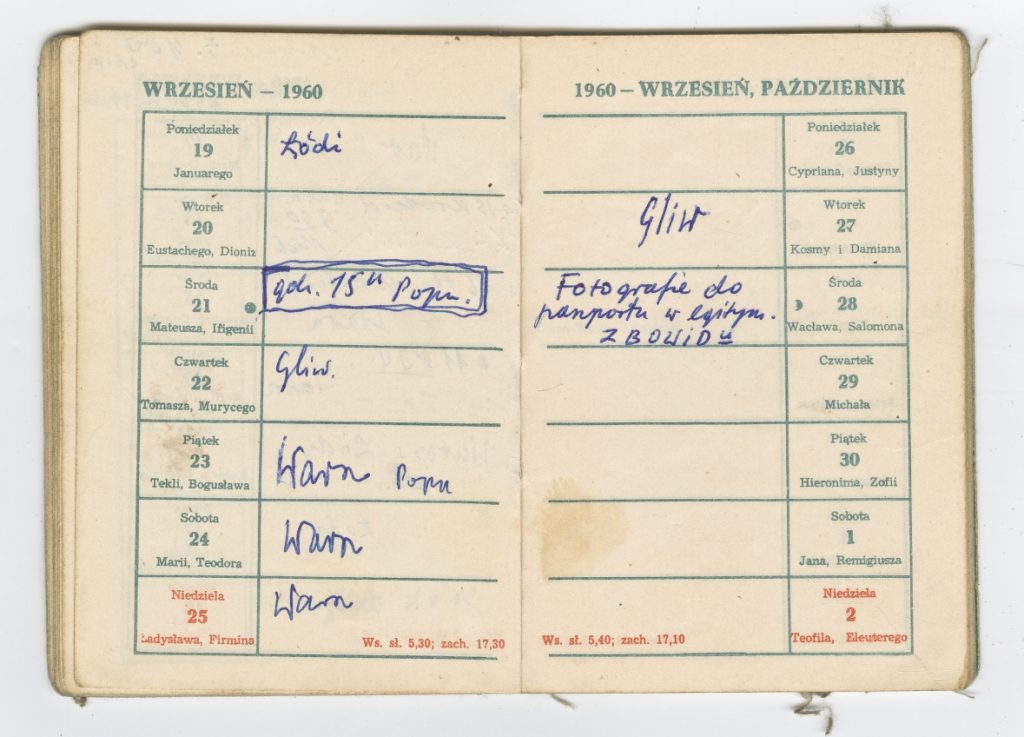 WRZESIEŃ – 1960
Poniedziałek
19
Januarego
Łódź
Wtorek
20
Eustachego, Dioniz
Środa
21
Mateusza, Ifigenii
godz. 15 Popu.
Czwartek
22
Tomasza, Murycego
Gliw.
Piątek
23
Tekli, Bogusława
Popu
Sobota
24
Marii, Teodora
Niedziela
25
Ładysława, Firmina
Ws. sł. 5,30; zach. 17,30
1960 – WRZESIEŃ, PAŹDZIERNIK
Poniedziałek
26
Cypriana, Justyny
Gliw
Wtorek
27
Kosmy i Damiana
Fotografie do
paszportu w legitym.
ZBOWIDu
Środa
28
Wacława, Salomona
Czwartek
29
Michała
Piątek
30
Hieronima, Zofii
Sobota
1
Jana, Remigiusza
Niedziela
2
Teofila, Eleuterego
Ws. sł. 5,40; zach. 17,10